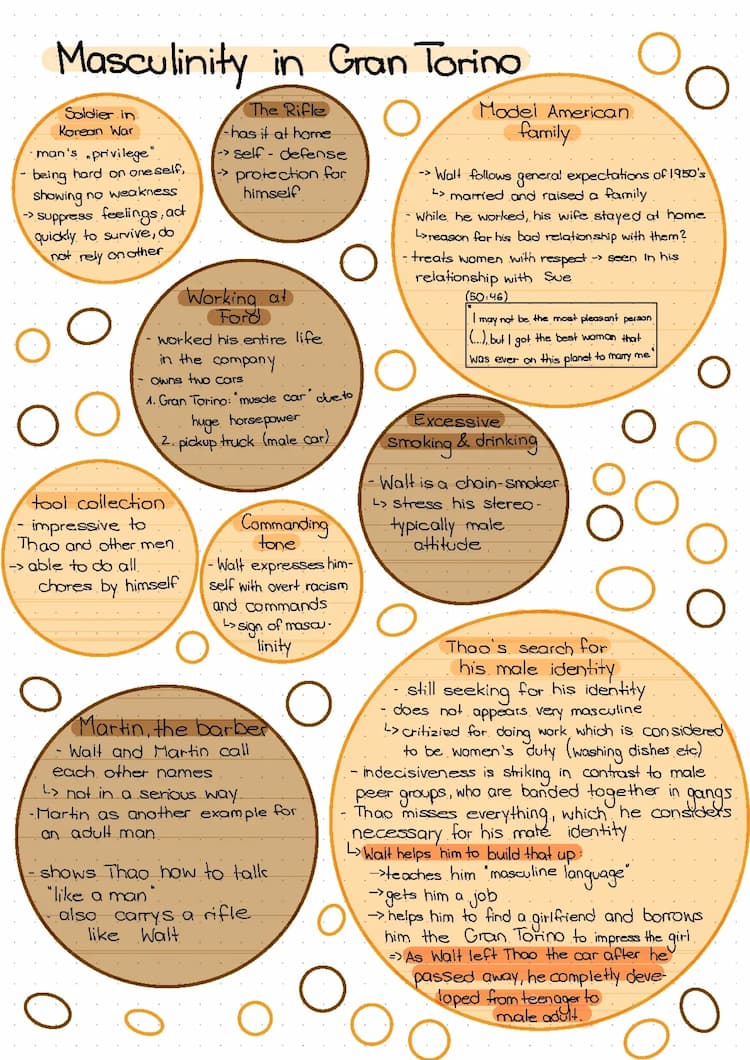 Masculinity in Gran Torino
Soldier in
Korean War
- man's „privilege"
- being hard on oneself,
showing no weakness
-> suppress feelings, act
quickly to survive, do
not rely on other
The Rifle
- has it at home
-> self - defense
-> protection for
himself
Model American
family
-> Walt follows general expectations of 1950's
↳ married and raised a family
- while he worked, his wife stayed at home
↳ reason for his bad relationship with them?
- treats women with respect -> seen in his
relationship with Sue
(50:46)
"I may not be the most pleasant person
(...), but I got the best woman that
was ever on this planet to marry me"
Working at
Ford
- worked his entire life
in the company
- owns two cars
1. Gran Torino: "muscle car" due to
huge horsepower
2. pickup truck (male car)
Excessive
smoking & drinking
- Walt is a chain-smoker
↳ stress his stereo-
typically male
attitude
tool collection
- impressive to
Thao and other men
-> able to do all
chores by himself
Commanding
tone
- Walt expresses him-
self with overt racism
and commands
↳ sign of mascu-
linity
Martin, the barber
- Walt and Martin call
each other names
↳ not in a serious way
- Martin as another example for
an adult man
- shows Thao how to talk
"like a man"
- also carrys a rifle
like Walt
Thao's search for
his male identity
- still seeking for his identity
- does not appears very masculine
↳ critizied for doing work which is considered
to be women's duty (washing dishes etc)
- indecisiveness is striking in contrast to male
peer groups, who are banded together in gangs
- Thao misses everything, which he considers
necessary for his male identity
↳ Walt helps him to build that up:
-> teaches him "masculine language"
-> gets him a job
-> helps him to find a girlfriend and borrows
him the Gran Torino to impress the girl
=> As Walt left Thao the car after he
passed away, he completly deve-
loped from teenager to
male adult.